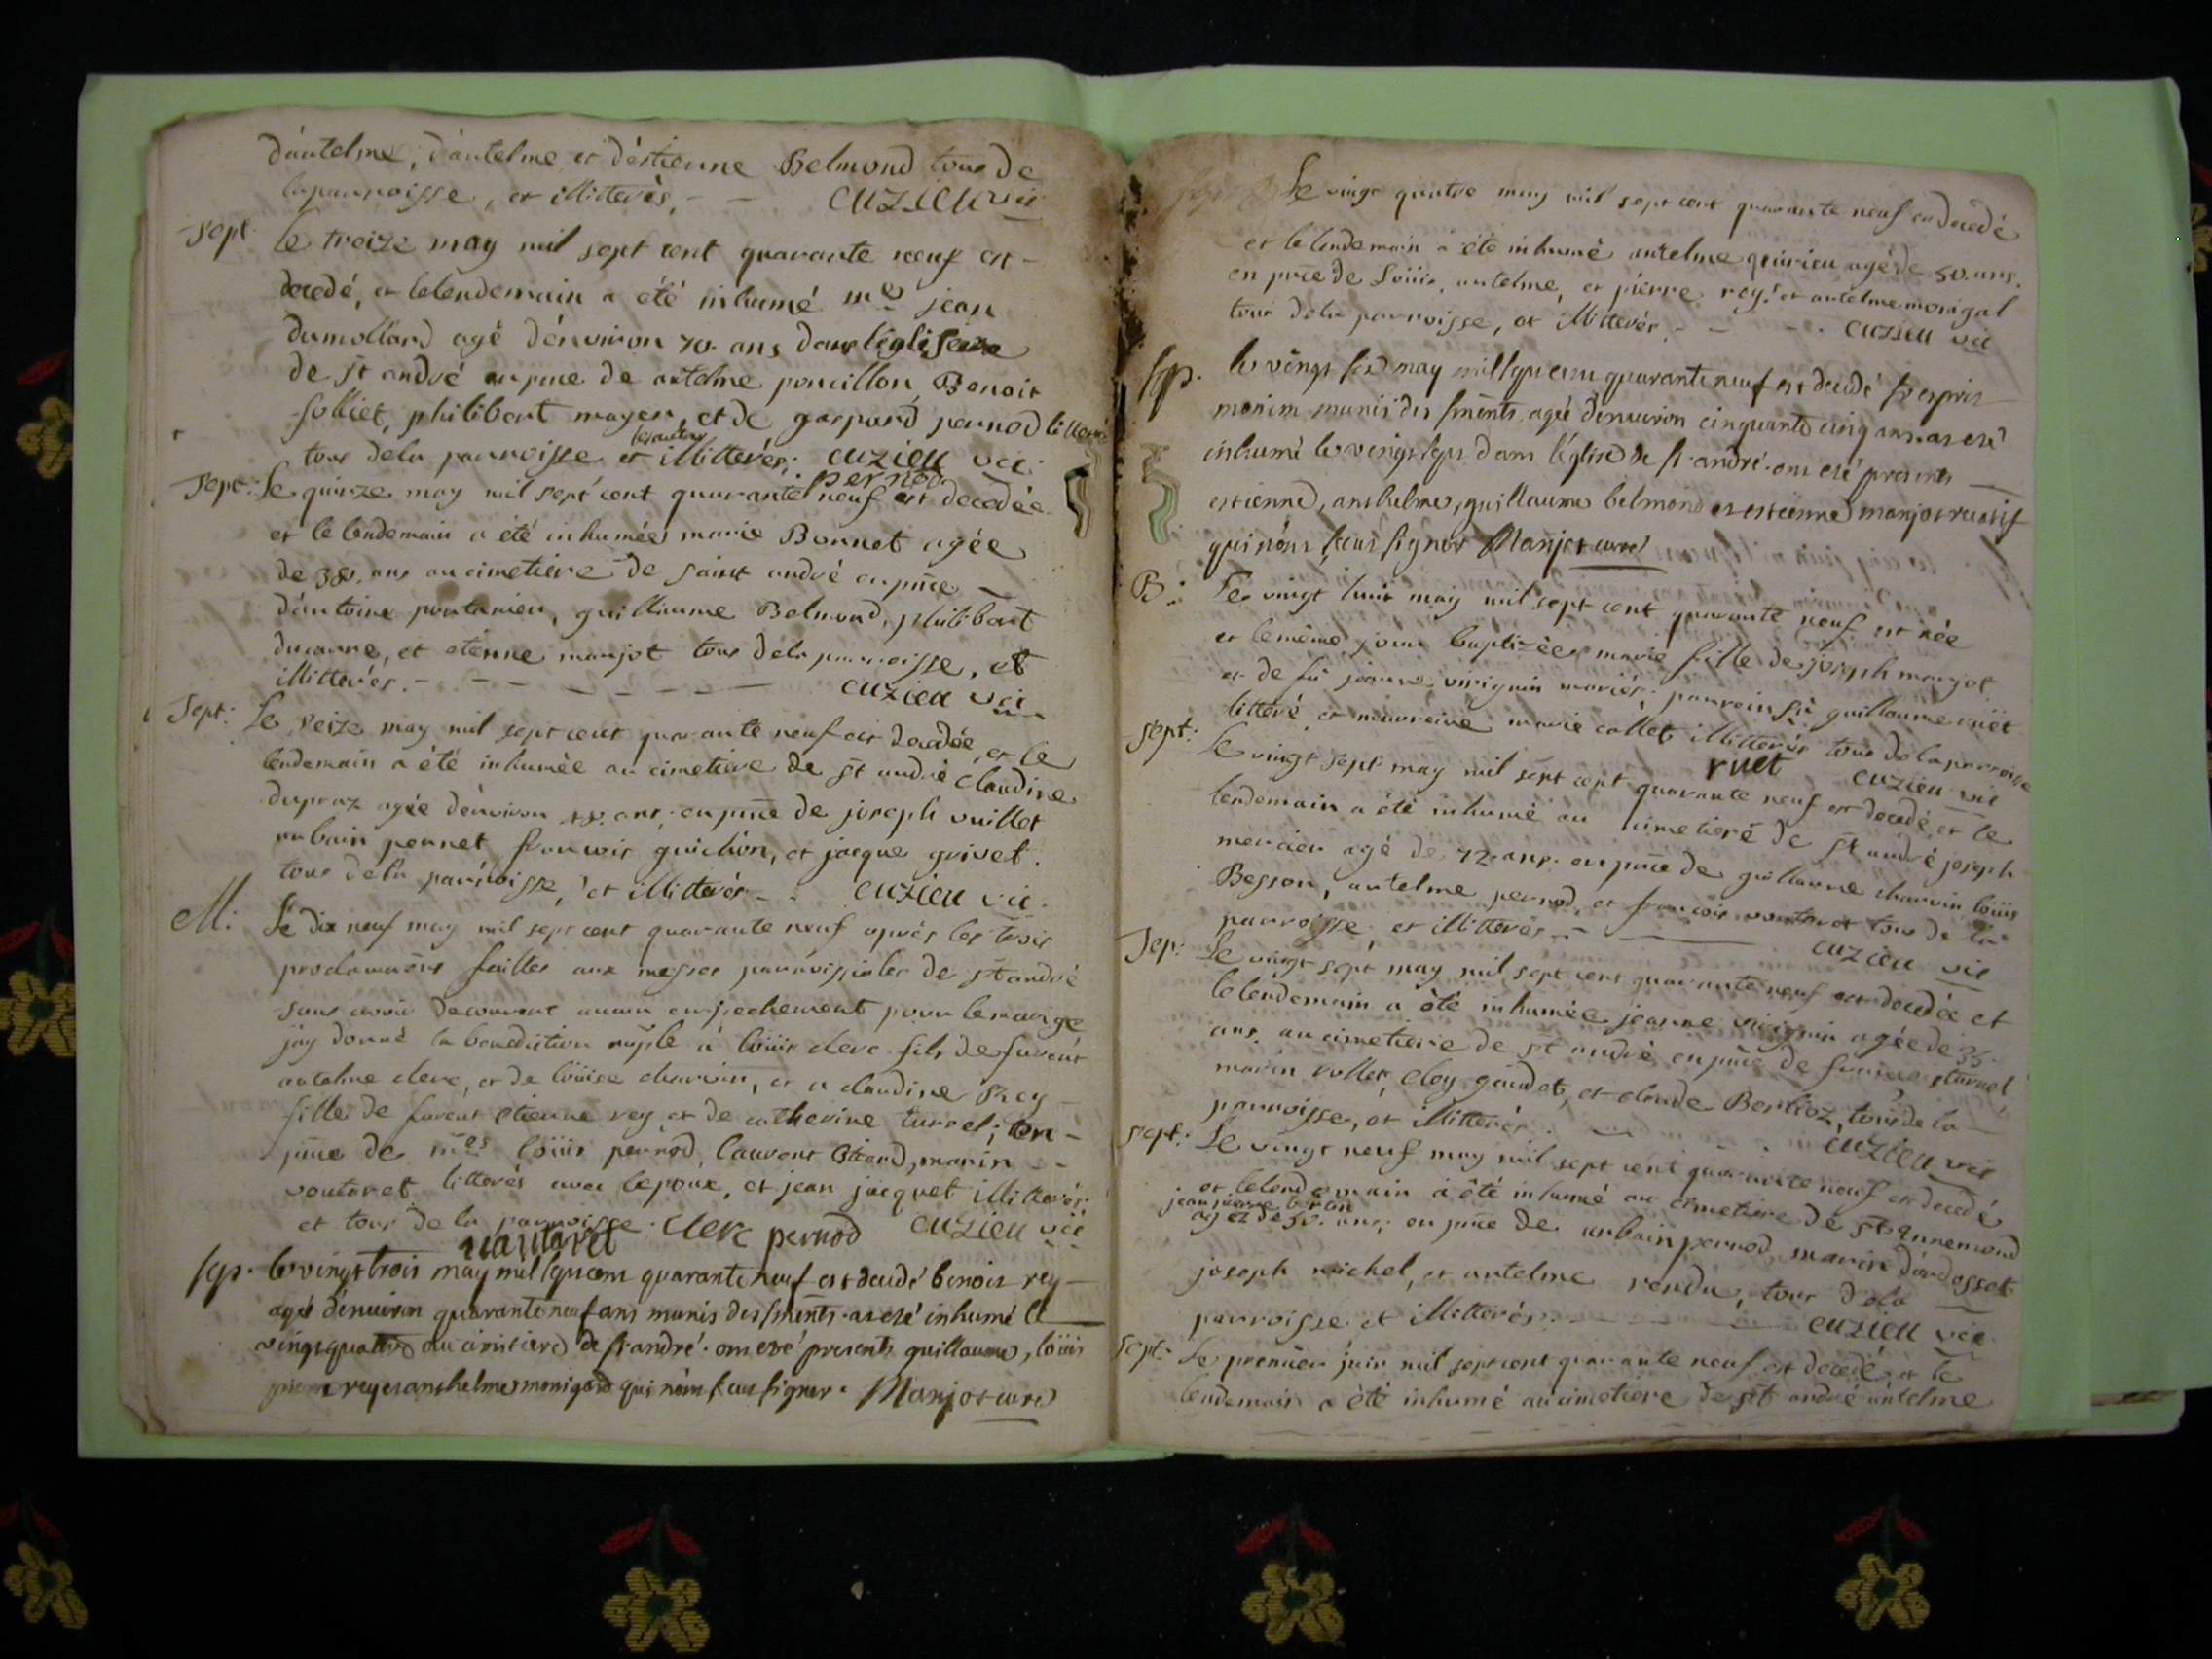 d'antelme, d'antelme et d'éstienne Belmond tous de
la parroisse, et illitterés, - - cuzieu vic
sept. le treize may mil sept cent quarante neuf est -
decedé, et le lendemain a été inhumé me jean
dumollard agé d'environ 70. ans dans l'église
de st andré en pnce de antelme poncillon, Benoit
Solliet, philibert mayer, et de gaspard pernod litteré
les autres
tous de la parroisse et illitterés; cuzieu vic
pernod
Sept: Le quinze may mil sept cent quarante neuf est decedée
et le lendemain a été inhumée marie Bonnet agée
de 38. ans au cimetiere de saint andré en pnce
d'antoine pontanieu, guilliaume Belmond, philibert
ducarre, et etienne manjot tous de la parroisse, et
illitterés. - - - - - - cuzieu vic
Sept: Le seize may mil sept cent quarante neuf est decedée, et le
lendemain a été inhumée au cimetiere de st andré claudine
dupraz agée d'environ ans; en pnce de joseph vuillet
urbain pernet francois guichon, et jacque grivet.
tous de la parroisse, et illitterés - cuzieu vic.
M: Le dix neuf may mil sept cent quarante neuf après les trois
proclamaõns faittes aux messes parroissiales de st andré
sans avoir decouvert aucun empechement pour le mariage
jay donné la benediction nuptle à loüis clerc fils de furent
antelme clerc, et de loüise charvin, et a claudine Rey
fille de furent etienne rey et de catherine turrel; en -
pnce de mes loüis pernod, laurent Btiend, marin - -
voutaret litterés avec l'epoux, et jean jacquet illitterés
et tous de la parroisse. Clerc pernod cuzieu vic
vautaret
sep. le vingt trois may mil sept cent quarante neuf est decedé benoit rey -
agé d'enuiron quarante neuf ans munis des sments. at esté inhumé le
vingt quatre au cimetiere de st andré. ont eté presents guillaume, loüis
pierre rey et anthelme monigard qui n'ont sceu signer. Manjot curé
Le vingt quatre may mil sept cent quarante neuf est decedé
et le lendemain a été inhumé antelme quirieu agé de 50. ans.
en pnce de Loüis, antelme, et pierre rey; et antelme monigal
tous de la parroisse, et illitterés. - - - cuzieu vic
sep. le vingt six may mil sept cent quarante neuf est decedé
monin munis des sments, agé d'enuiron cinquante cinq ans. at esté
inhumé le vingt sept dans l'église de st. andré. ont eté presents
estienne, anthelme, guillaume belmond et estienne manjot
qui n'ont sceus signer Manjot curé
B: Le vingt huit may mil sept cent quarante neuf est née
et le même jour baptizée marie fille de joseph manjot
et de fû jeanne virignin mariés; parrein sr guillaume ruët
litteré et marreine marie collet illitterés tous de la parroisse
ruet cuzieu vic
sept: Le vingt sept may mil sept cent quarante neuf est decedé, et le
lendemain a été inhumé au cimetiere de st andré joseph
mercier agé de 72 ans. en pnce de guillaume charvin loüis
Besson, antelme pernod, et francois voutaret tous de la
parroisse, et illitterés - - cuzieu vic
Sep: Le vingt sept may mil sept cent quarante neuf est decedée et
le lendemain a été inhumée jeanne virignin agée de 35.
ans. au cimetiere de st andré en pnce de
marin rollet, eloy gaudet, et claude Berlioz, tous de la
parroisse, et illitterés. - - cuzieu vic
sept: Le vingt neuf may mil sept cent quarante neuf est decedé
et le lendemain a été inhumé au cimetiere de st Annemond
jean pierre bertin
agez de 50. ans; en pnce de urbain pernod, marin dardosset
joseph michel, et antelme rendu, tous de la
parroisse et illitterés. - - - - cuzieu vic
Sept. Le premier juin mil sept cent quarante neuf est decedé, et le
lendemain a été inhumé au cimetiere de st andré antelme